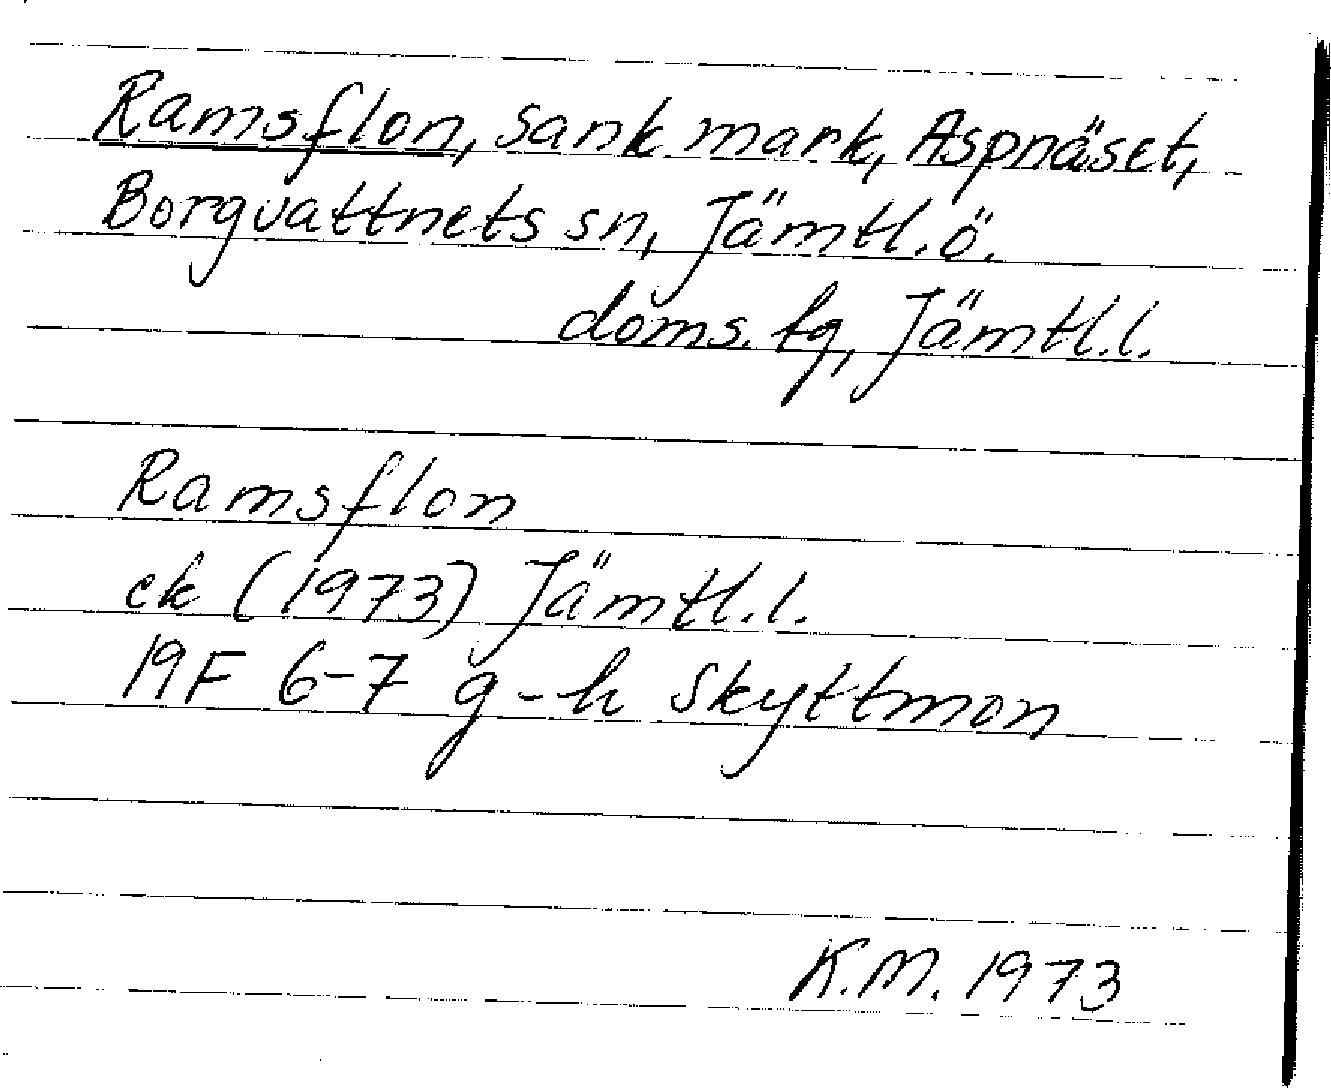 Ramsflon, sank mark, Aspnäset,
Borgvattnets sn, Jämtl.ö.
doms. tg, Jämtl.l.
Ramsflon
ek (1973) Jämtl.l.
19F 6-7 g-h Skyttmon
K.M. 1973